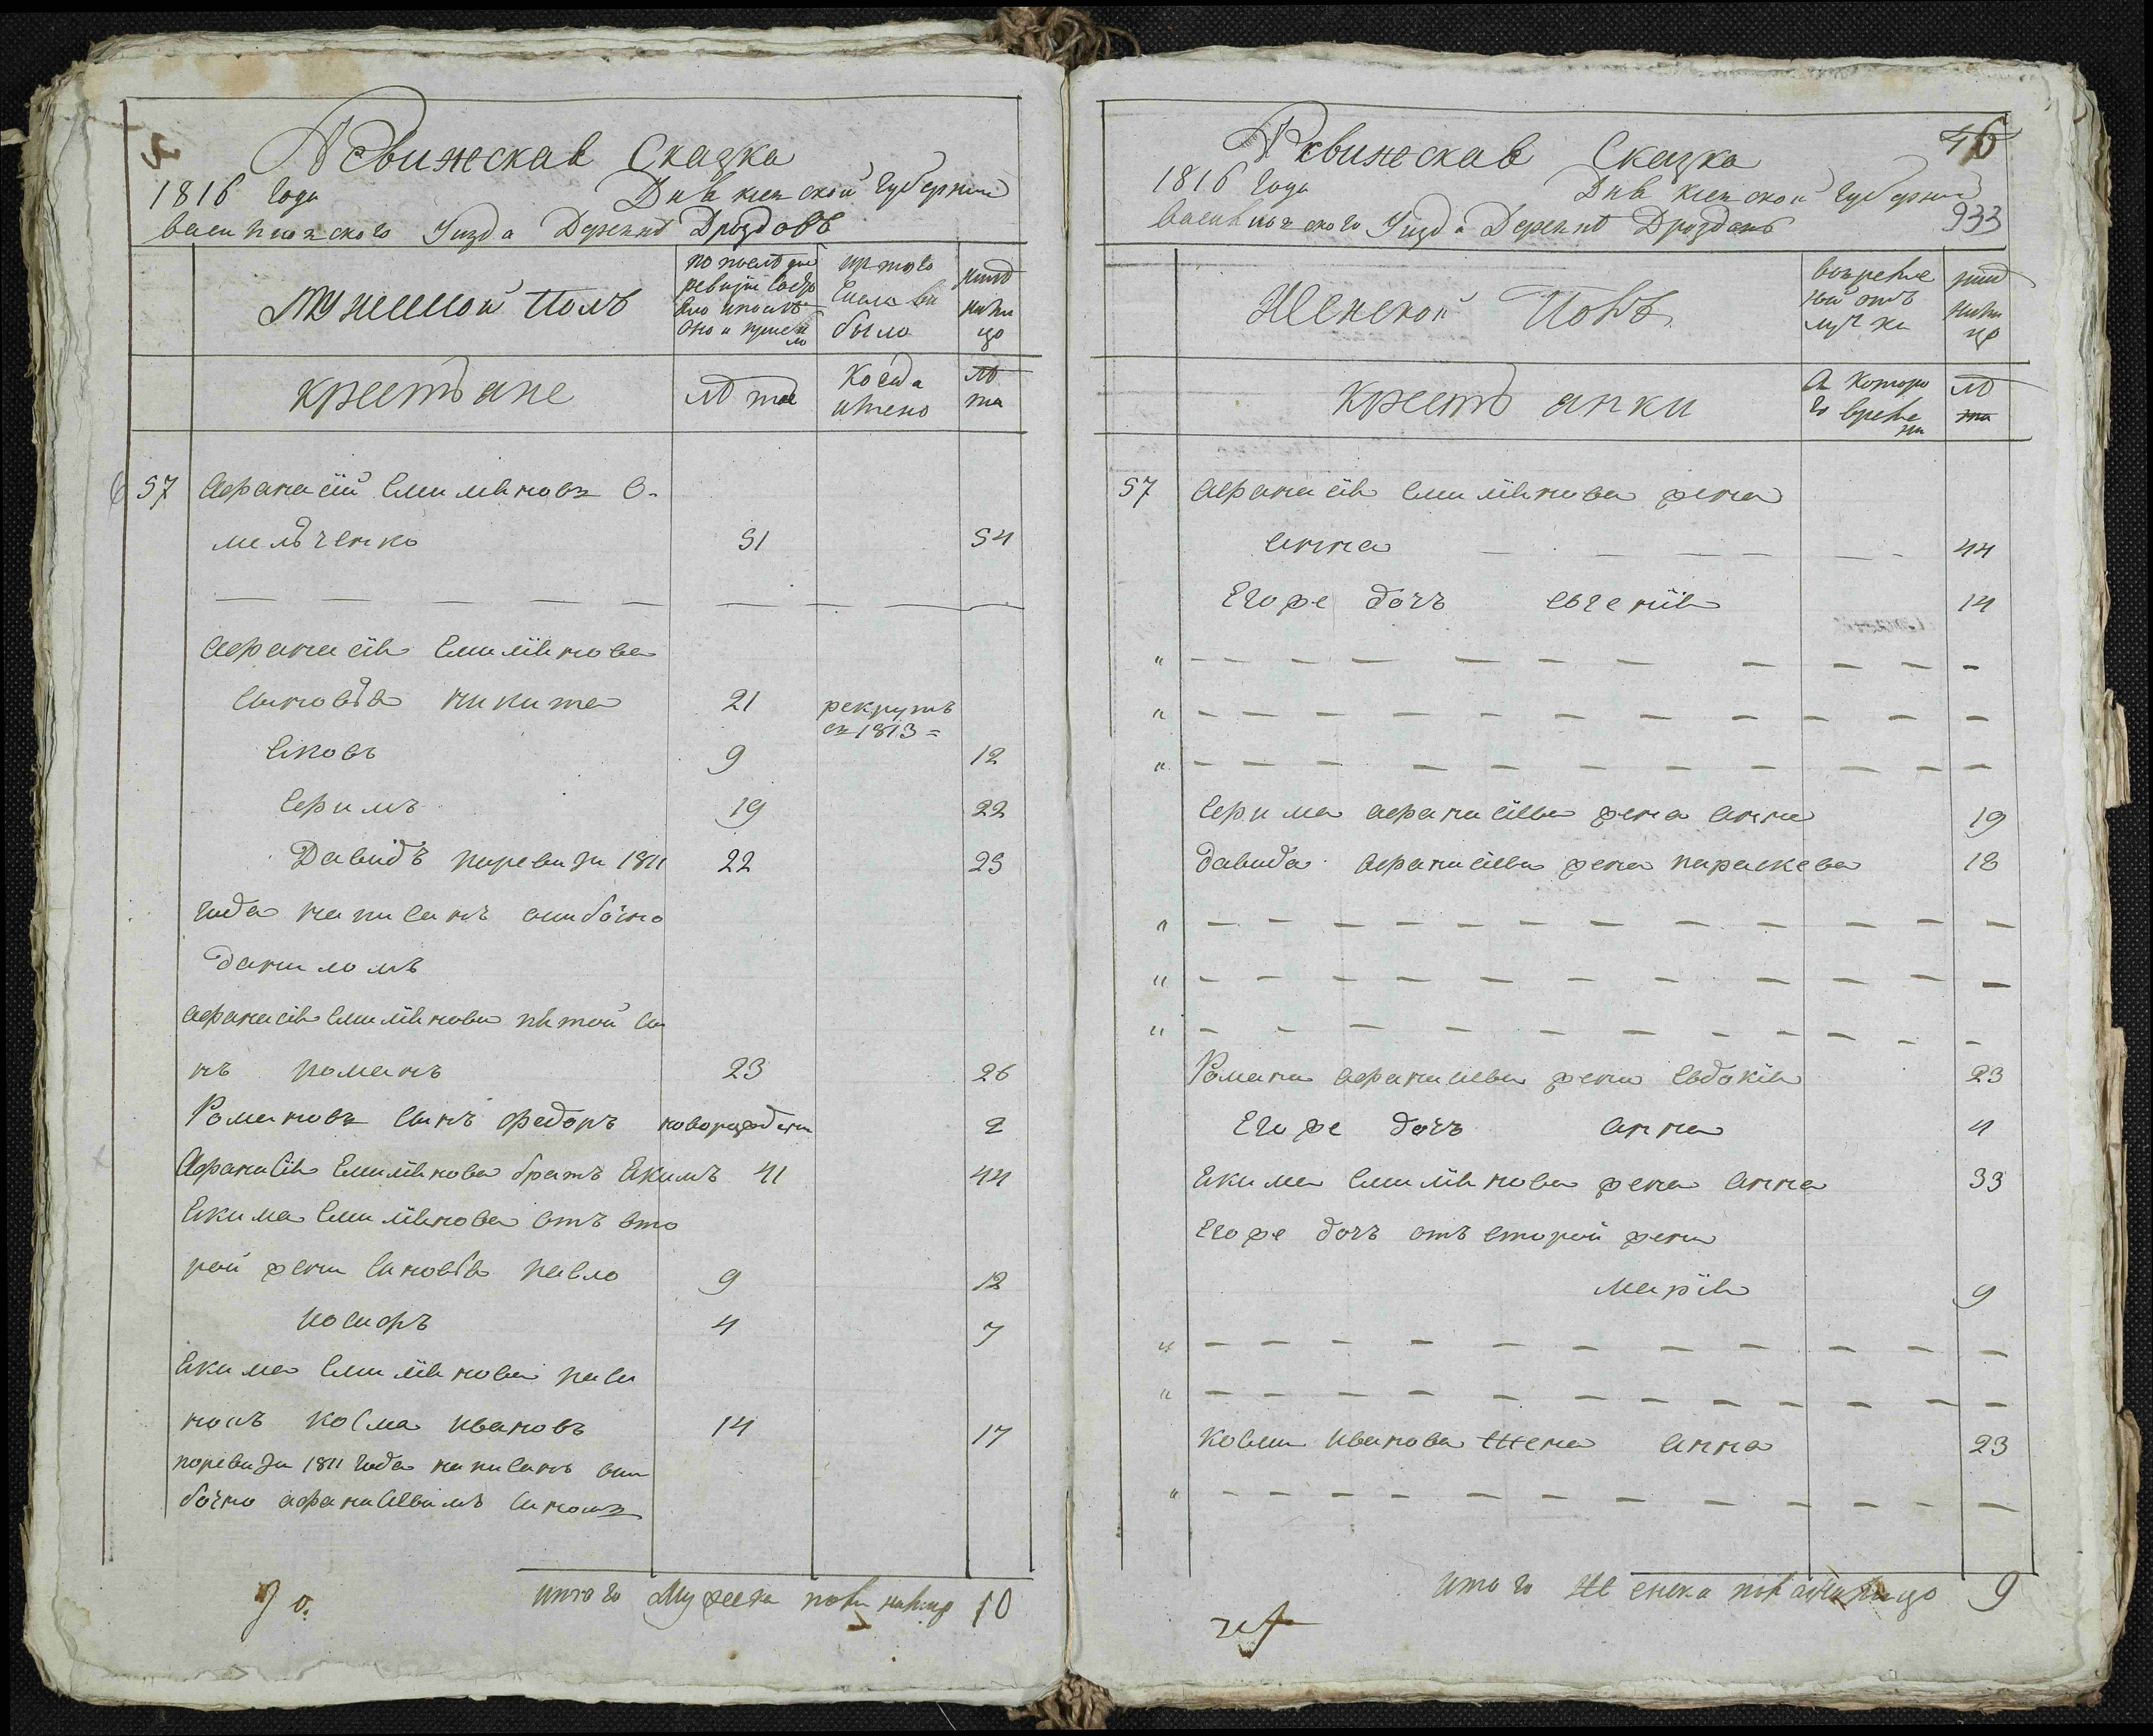 Ревижская Сказка
1816 Года Дня киевской Губернии
Василковского Уизда Деревнѣ Дроздовъ
Мужеской Полъ
по последней
ревизіи состо
яло и послѣ
оно и прибы
ло
ис того
числа вы
было
ныне
на ли
цо
крестьяне
лѣта
Когда
имено
лѣ
та
57 Афанасій Емиліяновъ О-
мельченко 51 54
Афанасія Емиліянова
сыновья никита 21 рекрутъ
въ 1813
Яковъ 9 12
Ефимъ 19 22
Давидъ поревизи 1811 22 25
года написанъ ошибочно
даниломъ
афанасія Емиліянова пятой сы
нъ романъ 23 26
Романовъ сынъ федоръ новорожденн 2
Афанасія Емиліянова братъ Екимъ 41 44
Екима Емиліянова отъ вто
рой жени синовья павло 9 12
иосифъ 4 7
Екима Емиліянова паси
нокъ косма ивановъ 14 17
поревизи 1811 года написанъ оши
бочно афанасіевимъ синомъ
итого Мужеска пола налицо 10
Ревижская Сказка
46
1816 Года Дня киевской Губернии
933
Василковского Уизда Деревнѣ Дроздовъ
Женской Полъ
вовремен
ной отъ
лучки
ныне
нали
цо
крестьянки
А которо
го време
ни
лѣ
та
57 Афанасія Емиліянова жена
анна 44
Егоже дочъ евгенія 14
Ефима афанасіева жена анна 19
Давида афанасіева жена параскева 18
Романа афанасіева жена Евдокія 23
Егоже дочъ анна 4
Екима Емиліянова жена анна 33
Егоже дочъ отъ второй жени
марія 9
космы иванова жена анна 23
итого женска пола налицо 9